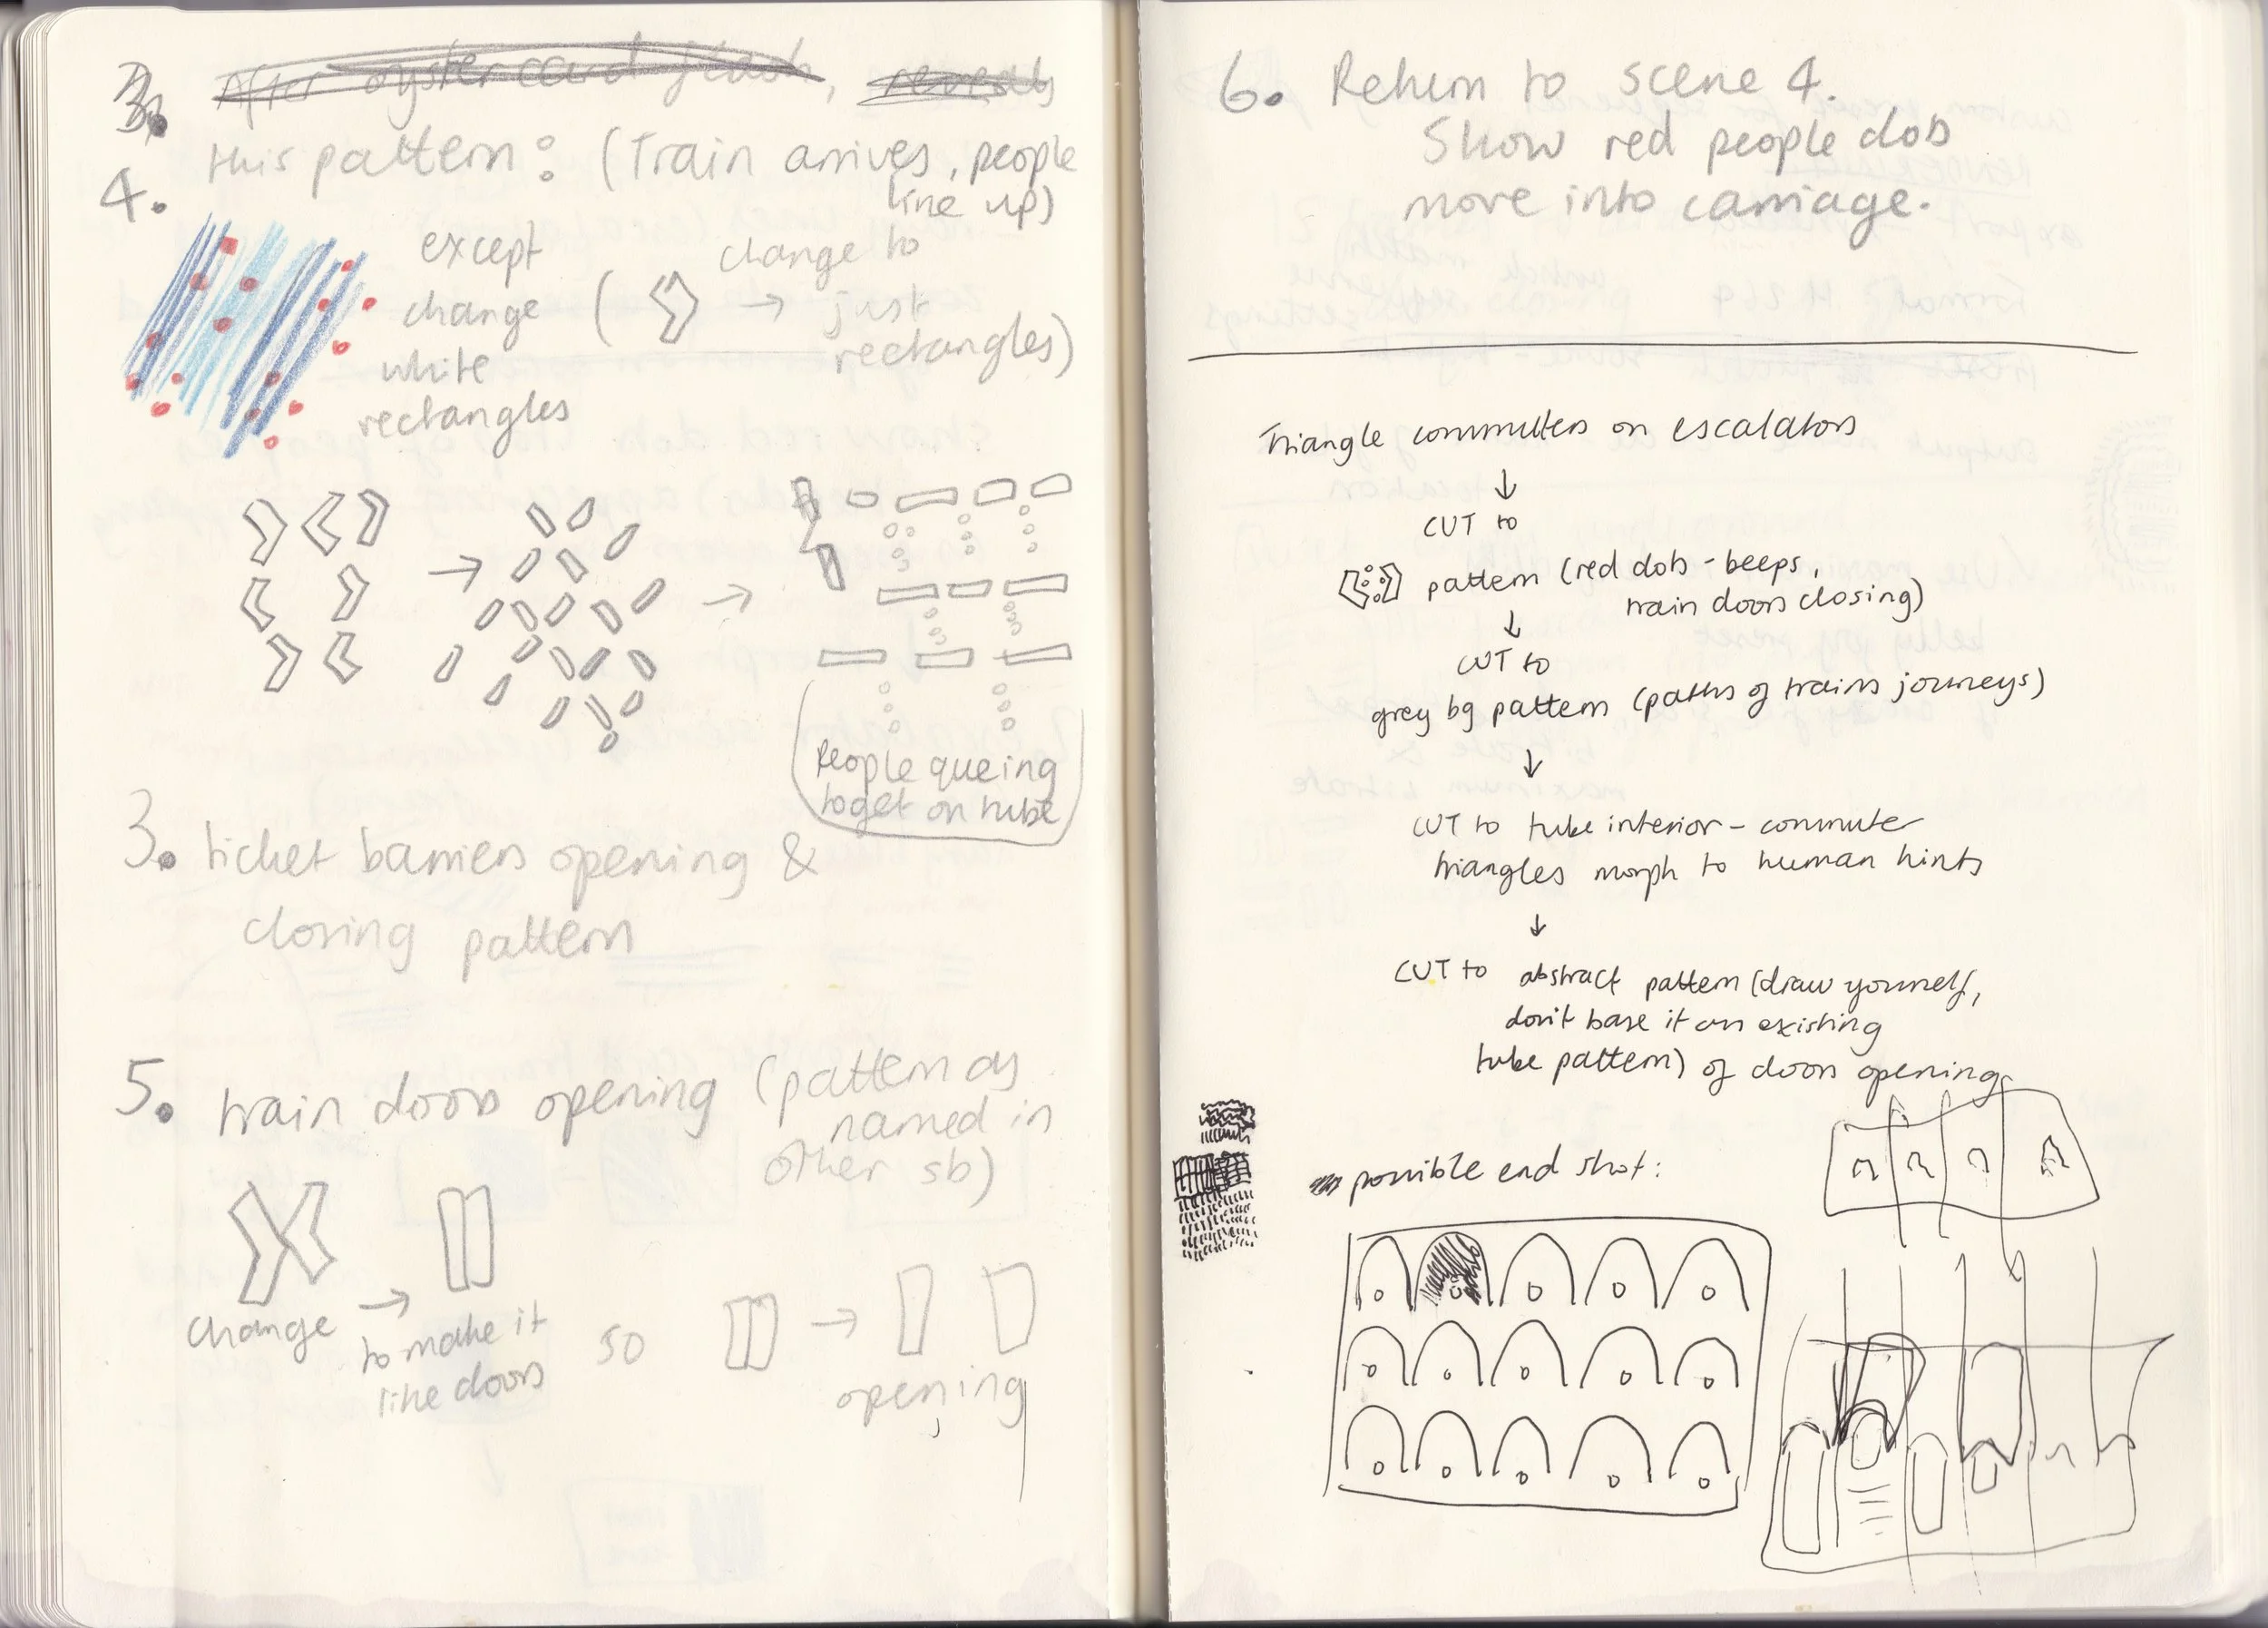 3.
After oystercard flash, reveals
this pattern: (Train arrives, people
line up)
4.
except
change
white
rectangles
( → change to
just
rectangles)
→
→
People queing
to get on tube
3. ticket barriers opening &
closing pattern
5. train doors opening (pattern as
named in
other sb)
change → to make it
like doors
so
→
opening
6. Return to scene 4.
Show red people dots
move into carriage.
Triangle commuters on escalators
↓
CUT to
pattern (red dots - beeps,
train doors closing)
↓
CUT to
grey bg pattern (paths of trains journeys)
↓
CUT to tube interior - commuter
triangles morph to human hints
↓
CUT to abstract pattern (draw yourself,
don't base it on existing
tube pattern) of doors opening
possible end shot: